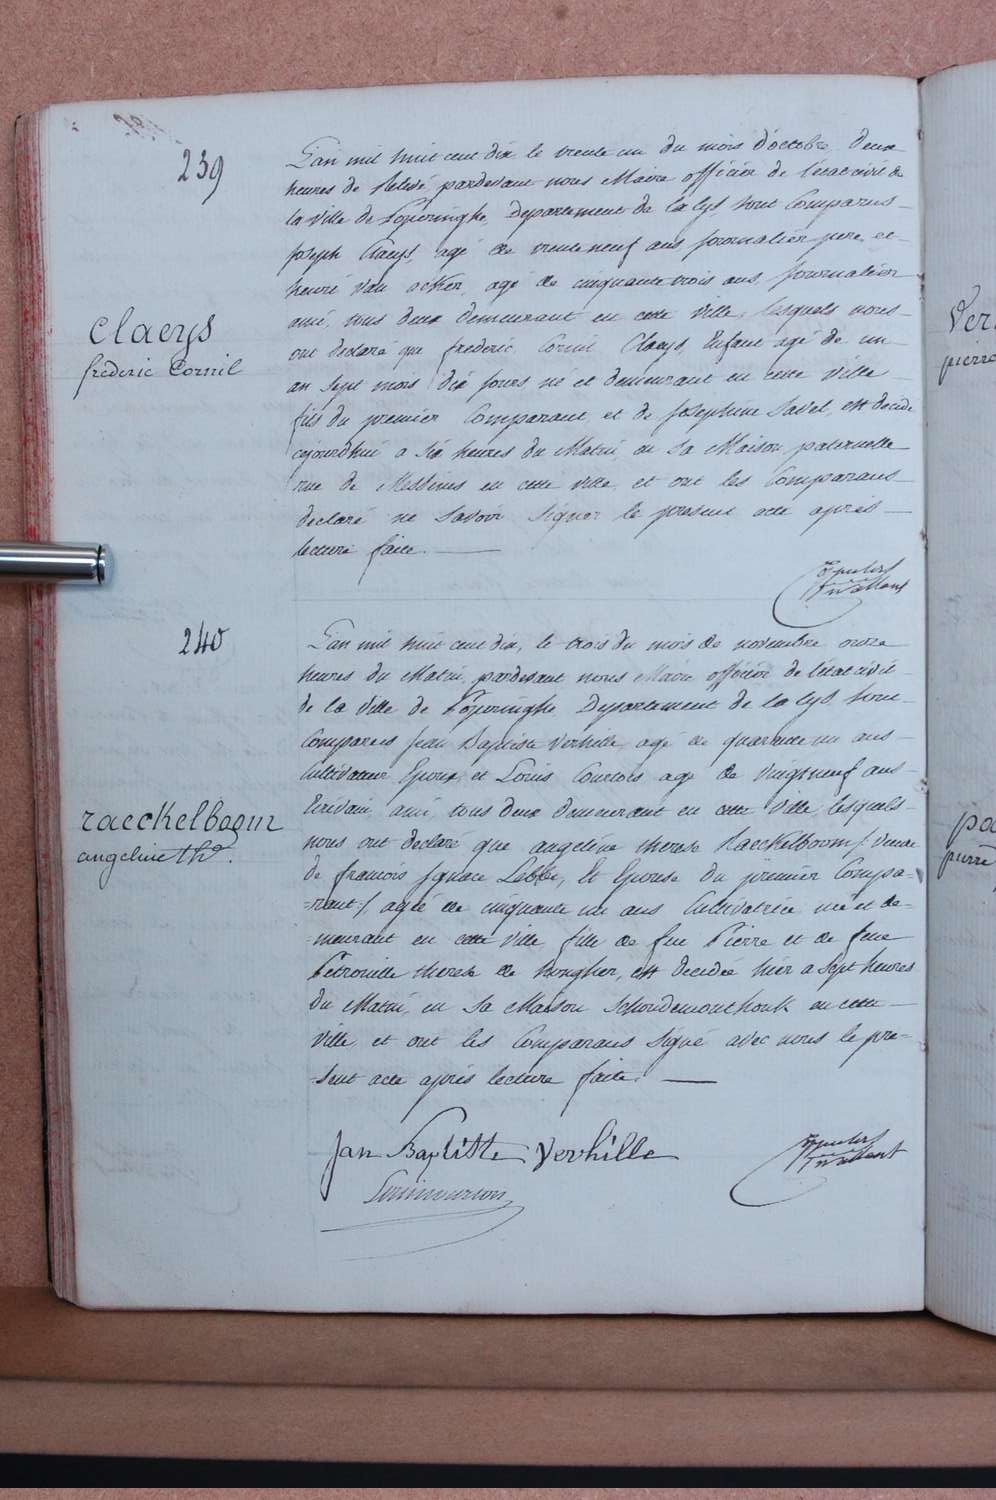 239
L'an mil huit cent dix le trente un du mois d'octobre deux
heures de Relevé pardevant nous Maire officier de l'état civil de
la ville de Poperinghe, Departement de la Lys, sont Comparus
Joseph Claeys, agé de trente neuf ans journalier pere, et
henri van acker, agé de cinquante trois ans, journalier
ami, tous deux demeurant en cette ville, lesquels nous
ont declaré que frederic Cornil Claeys, Enfant agé de un
an sept mois dix jours né et demeurant en cette ville
fils du premier Comparant et de Josephine Savel, est decidé
cejourdhui a six heures du Matin, en sa Maison paternelle
rue de Messines en cette ville, et ont les Comparans
declaré ne savoir signer le present acte après
lecture faite.
Claeys
frederic Cornil
240
L'an mil huit cent dix, le trois du mois de novembre onze
heures du Matin, pardevant nous Maire officier de l'état civil
de la ville de Poperinghe, Departement de la Lys, sont
Comparus Jean Baptiste Verhille, agé de quarante un ans
Cultivateur Epoux, et Louis Courtois agé de vingt neuf ans
Ecrivain, ami, tous deux demeurant en cette ville, lesquels
nous ont declaré que angeline therese Raeckelboom /: veuve
de francois Ignace Lebbe, et Epouse du premier Compa-
-rant :/, agée de cinquante un ans Cultivatrice née et de-
-meurant en cette ville fille de feu Pierre et de feue
Petronille therese de hongher, est decidée hier a sept heures
du Matin, en sa Maison Schoudemonthouk en cette
ville, et ont les Comparans signé avec nous le pre-
-sent acte après lecture faite.
raeckelboom
angeline thé.
Jan Baptiste Verhille
Ver
pierre
pa
pierre